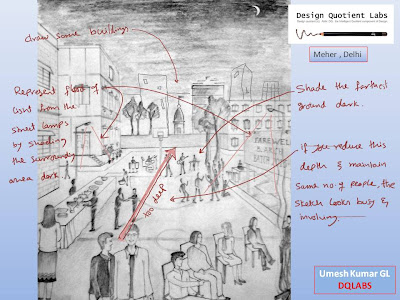 Design Quotient Labs
Meher , Delhi
draw some buildings
Represent flood of
light from the
street lamps
by shading
the surrounding
area dark.
Shade the farthest
ground dark.
If you reduce this
depth & maintain
same no. of people, the
sketch looks busy &
involving.
too deep
FAREWELL
BATCH
Umesh Kumar GL
DQLABS